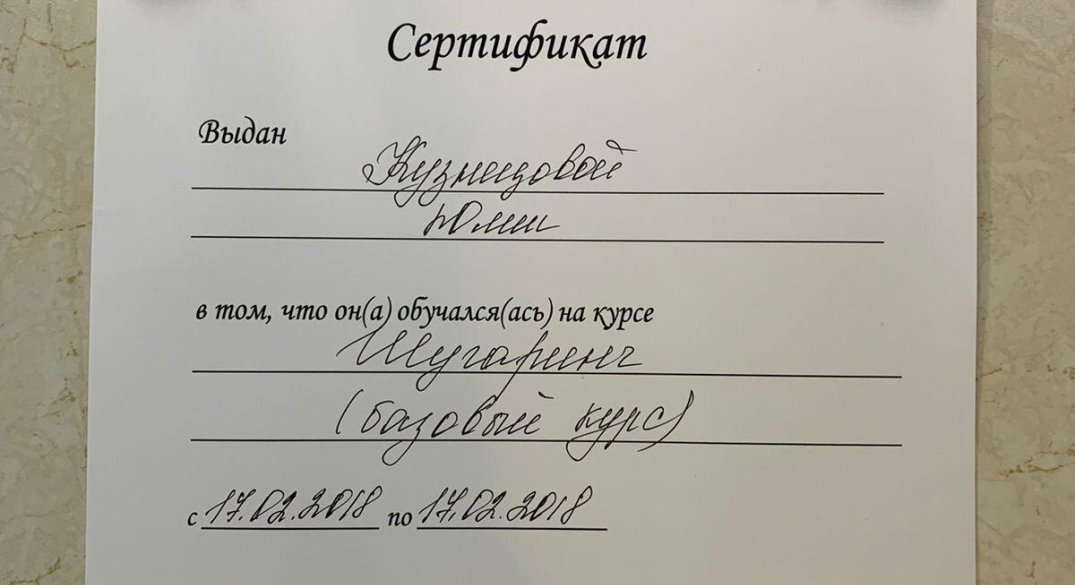 Сертификат
Выдан
Кузнецовой
Юлии
в том, что он(а) обучался(ась) на курсе
Шугаринг
(базовый курс)
с 17.02.2018 по 17.02.2018